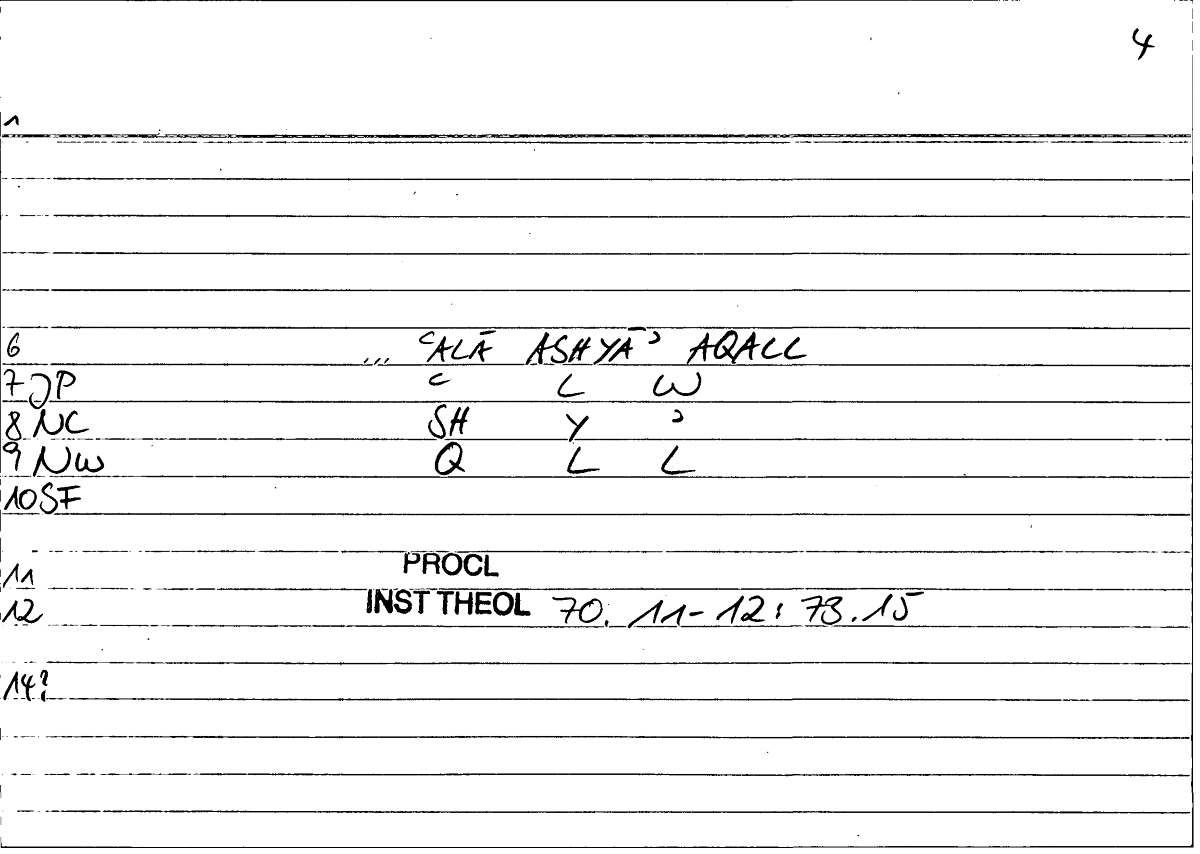 4
1
6 ... ʿALĀ ASHYĀʾ AQALL
7 JP ʿ L W
8 NC SH Y ʾ
9 NW Q L L
10 SF
11 PROCL
12 INST THEOL 70. 11-12 : 73.15
14?